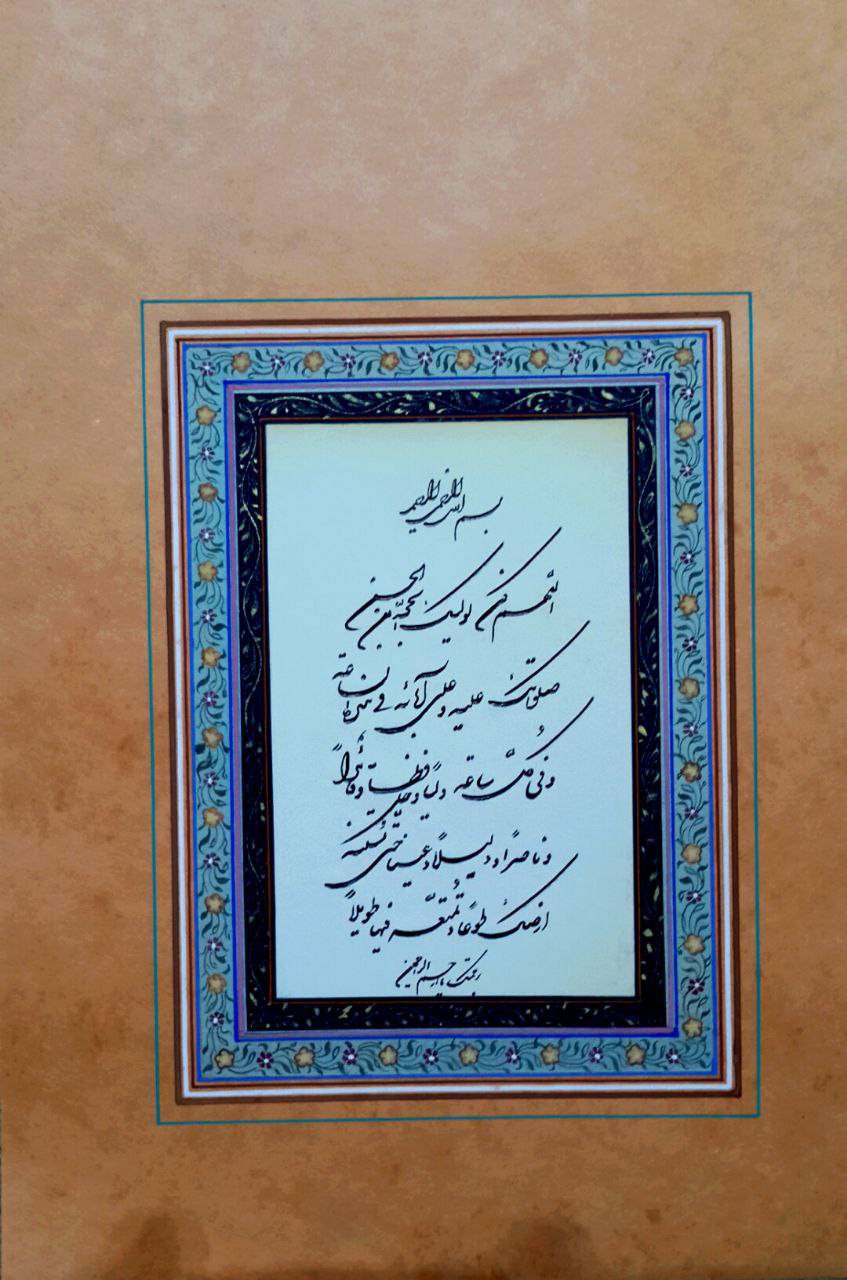 بسم الله الرحمن الرحیم
اللّهم کن لولیک الحجة ابن الحسن
صلواتک علیه و علی آبائه فی هذه الساعة
و فی کلّ ساعة ولیاً و حافظاً و قائداً
و ناصراً و دلیلاً و عیناً حتی تسکنه
ارضک طوعاً و تُمتعّه فیها طویلاً
برحمتک یا ارحم الراحمین